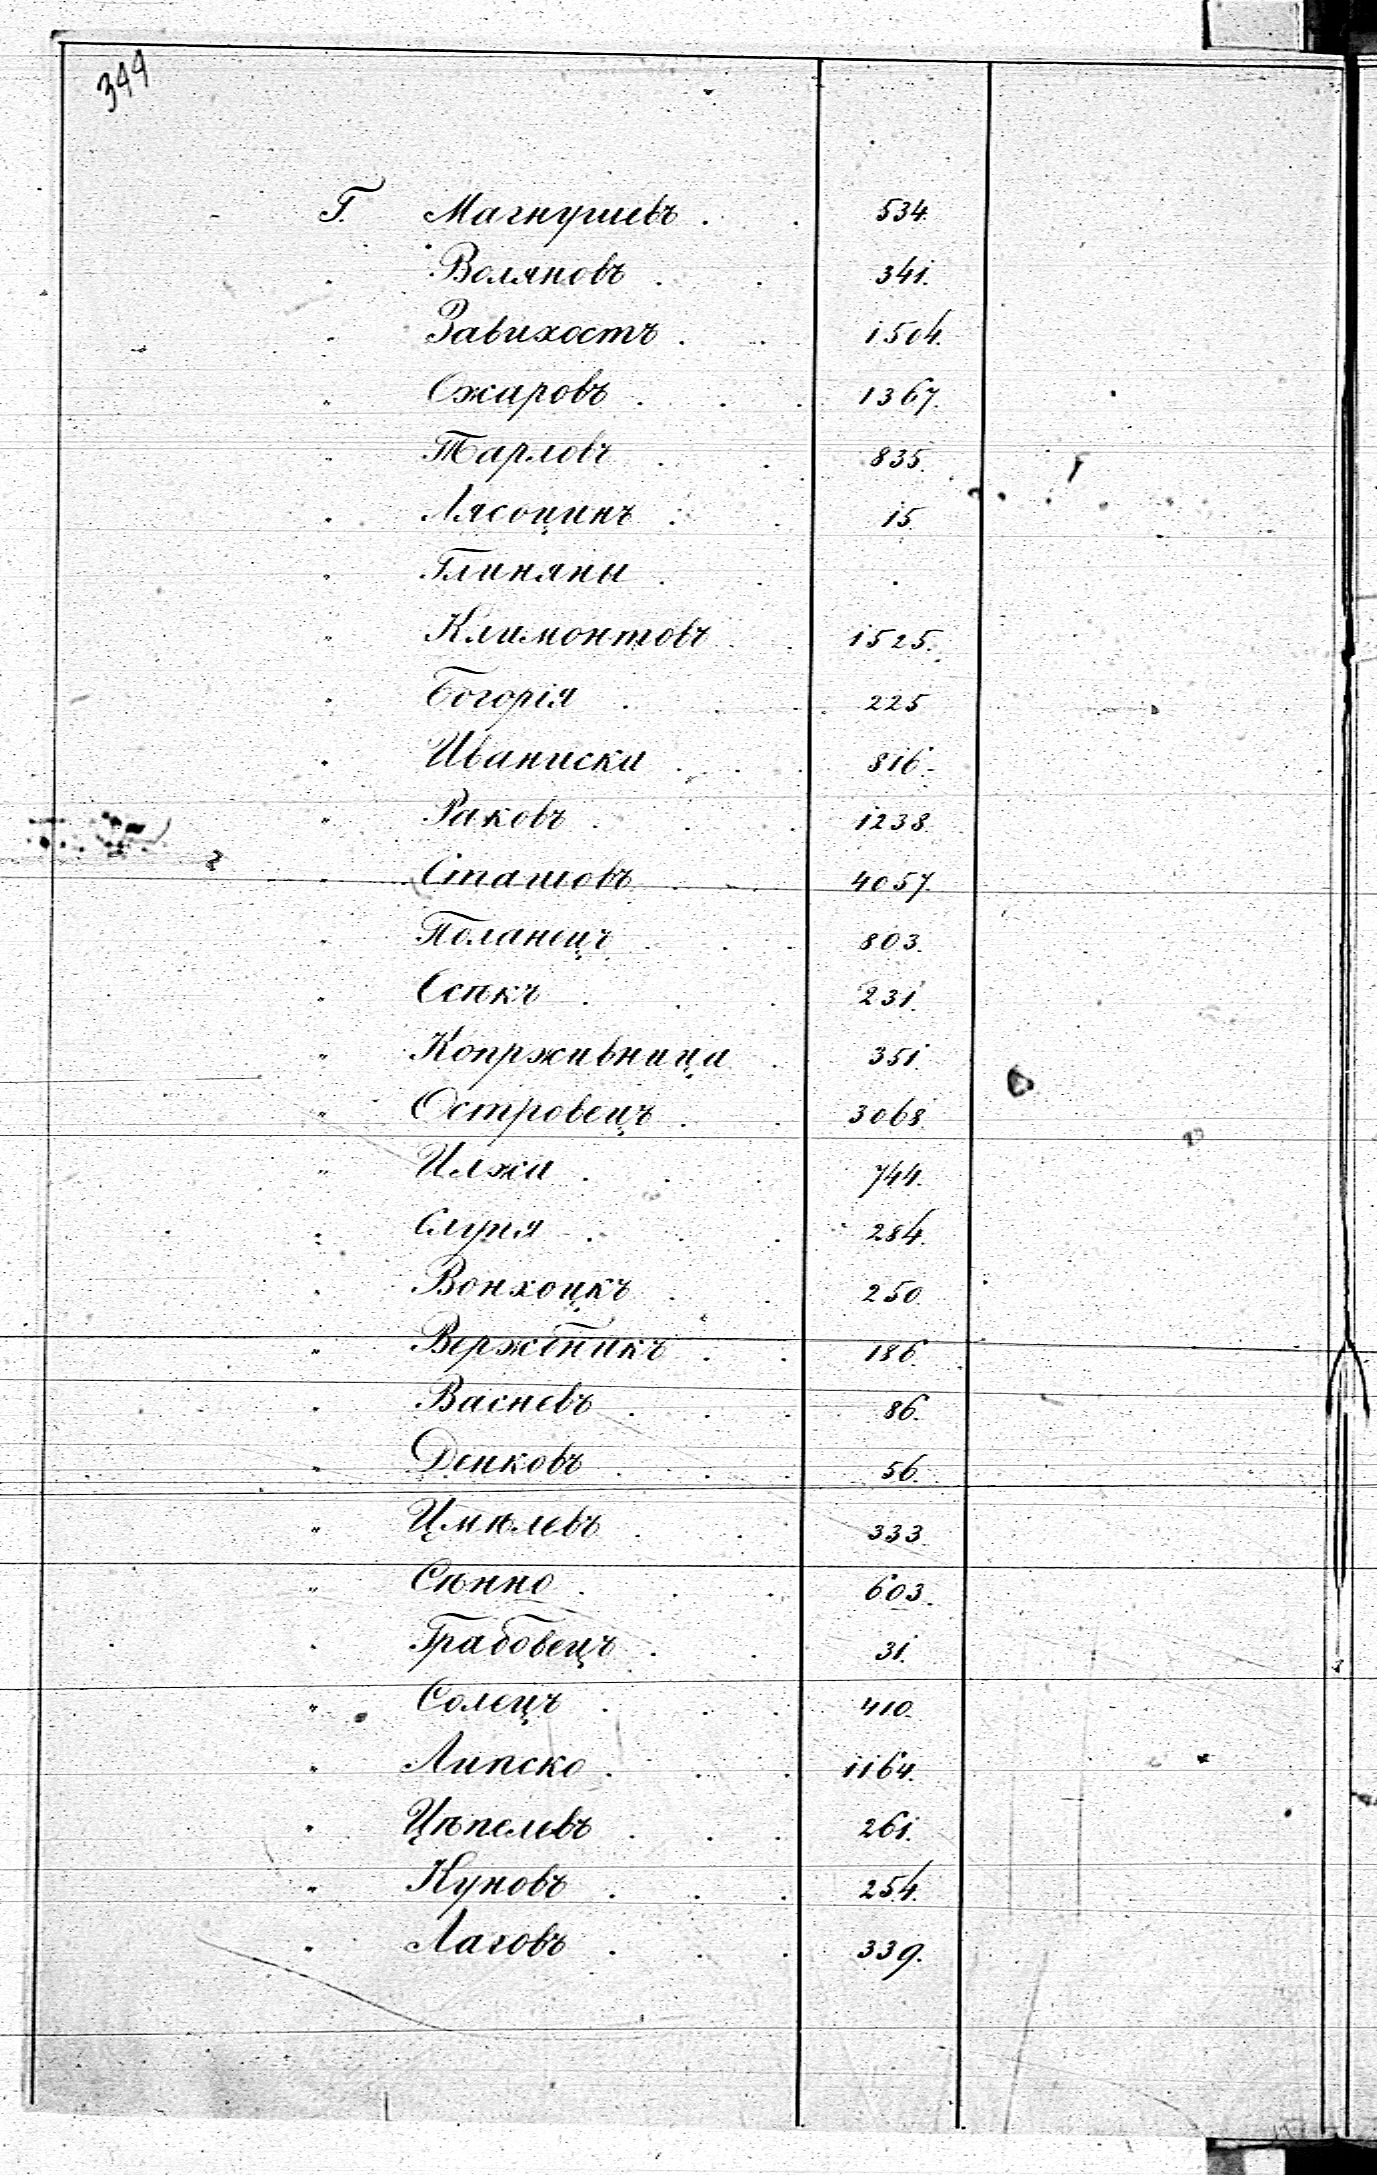 344
Г. Магнушевъ . . 534.
" Воляновъ . . 341.
" Завихостъ . . 1504.
" Ожаровъ . . . 1367.
" Тарловъ . . 835.
" Лясоцинъ . . 15.
" Глиняны . . .
" Климонтовъ . . 1525.
" Богорія . . . 225
" Иваниски . . . 816.
" Раковъ . . . 1238.
" Сташовъ . . 4057.
" Поланецъ . . . 803.
" Осѣкъ . . . 231.
" Копрживница . 351.
" Островецъ . . 3068.
" Илжа . . . 744.
" Слупя . . . 284.
" Вонхоцкъ . . 250.
" Вержбникъ . . 186.
" Васневъ . . . 86.
" Денковъ . . . 56.
" Цмѣлевъ . . 333.
" Сѣнно . . . 603.
" Грабовецъ . . 31.
" Солецъ . . . 410.
" Липско . . . 1164.
" Цѣпелевъ . . . 261.
" Куновъ . . . 254.
" Лаговъ . . . 339.